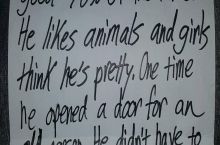 He likes animals and girls
think he's pretty. One time
he opened a door for an
old person. He didn't have to